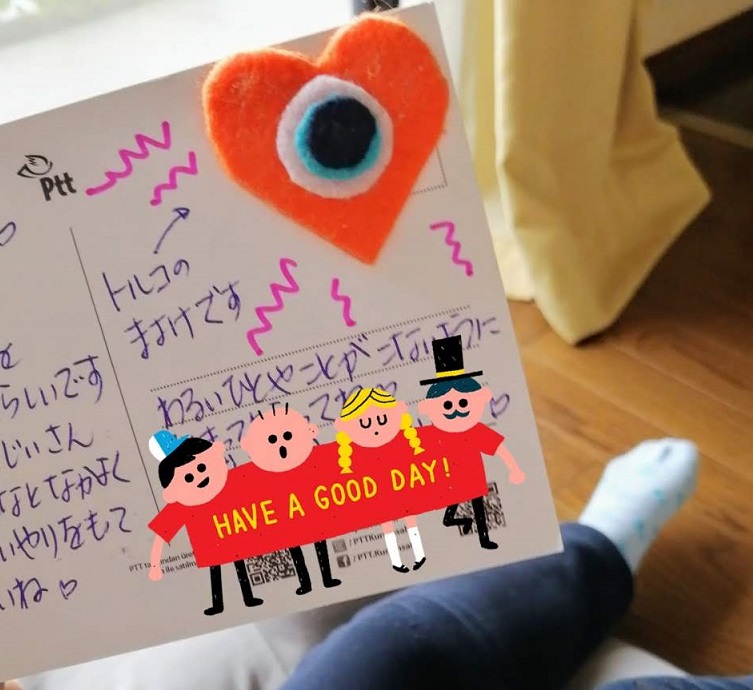 Ptt
トルコの
まよけです
わるいひとやことが こないように
らしいです
じいさん
なとなかよく
いやりをもて
いね♡
HAVE A GOOD DAY!
PTT
/PTTKur
/PTT.Kur